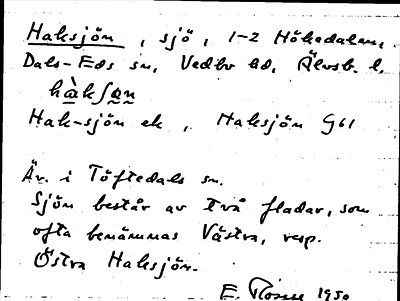 Haksjön, sjö, 1-2 Hökedalen,
Dals-Eds sn, Vedbo hd, Älvsb. l.
hàkʃən
Hak-sjön ek, Haksjön G61
Äv. i Töftedals sn.
Sjön består av två fladar, som
ofta benämnas Västra, resp.
Östra Haksjön.
E. 1950